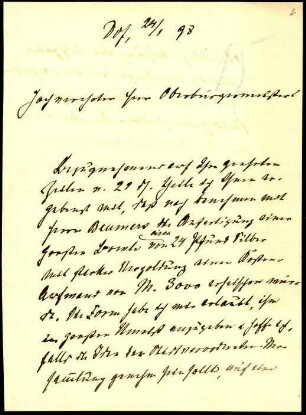 Ddf, 24/1 93
Hochverehrter Herr Oberbürgermeister!
Bezugnehmend auf Ihre geehrten
Zeilen v. 22 d. theile ich Ihnen er-
gebenst mit, daß nach Benehmen mit
Herrn Beumers die Anfertigung einer
großen von 24 Pfund Silber
mit starker Vergoldung einen Kosten-
Aufwand von M. 3000 erfordern wür-
de. Die Form habe ich mir erlaubt, ihm
im großen Umriß anzugeben & hoffe ich,
falls die Idee der Stadtverordneten-Ver-
sammlung genehm sein sollte, auf eine